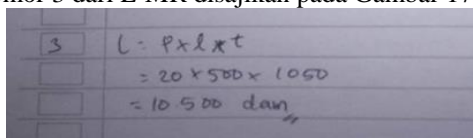 mor 3 dari E-MR disajikan pada Gambar 17
3 L = P x l x t
= 20 x 500 x 1050
= 10.500 dan